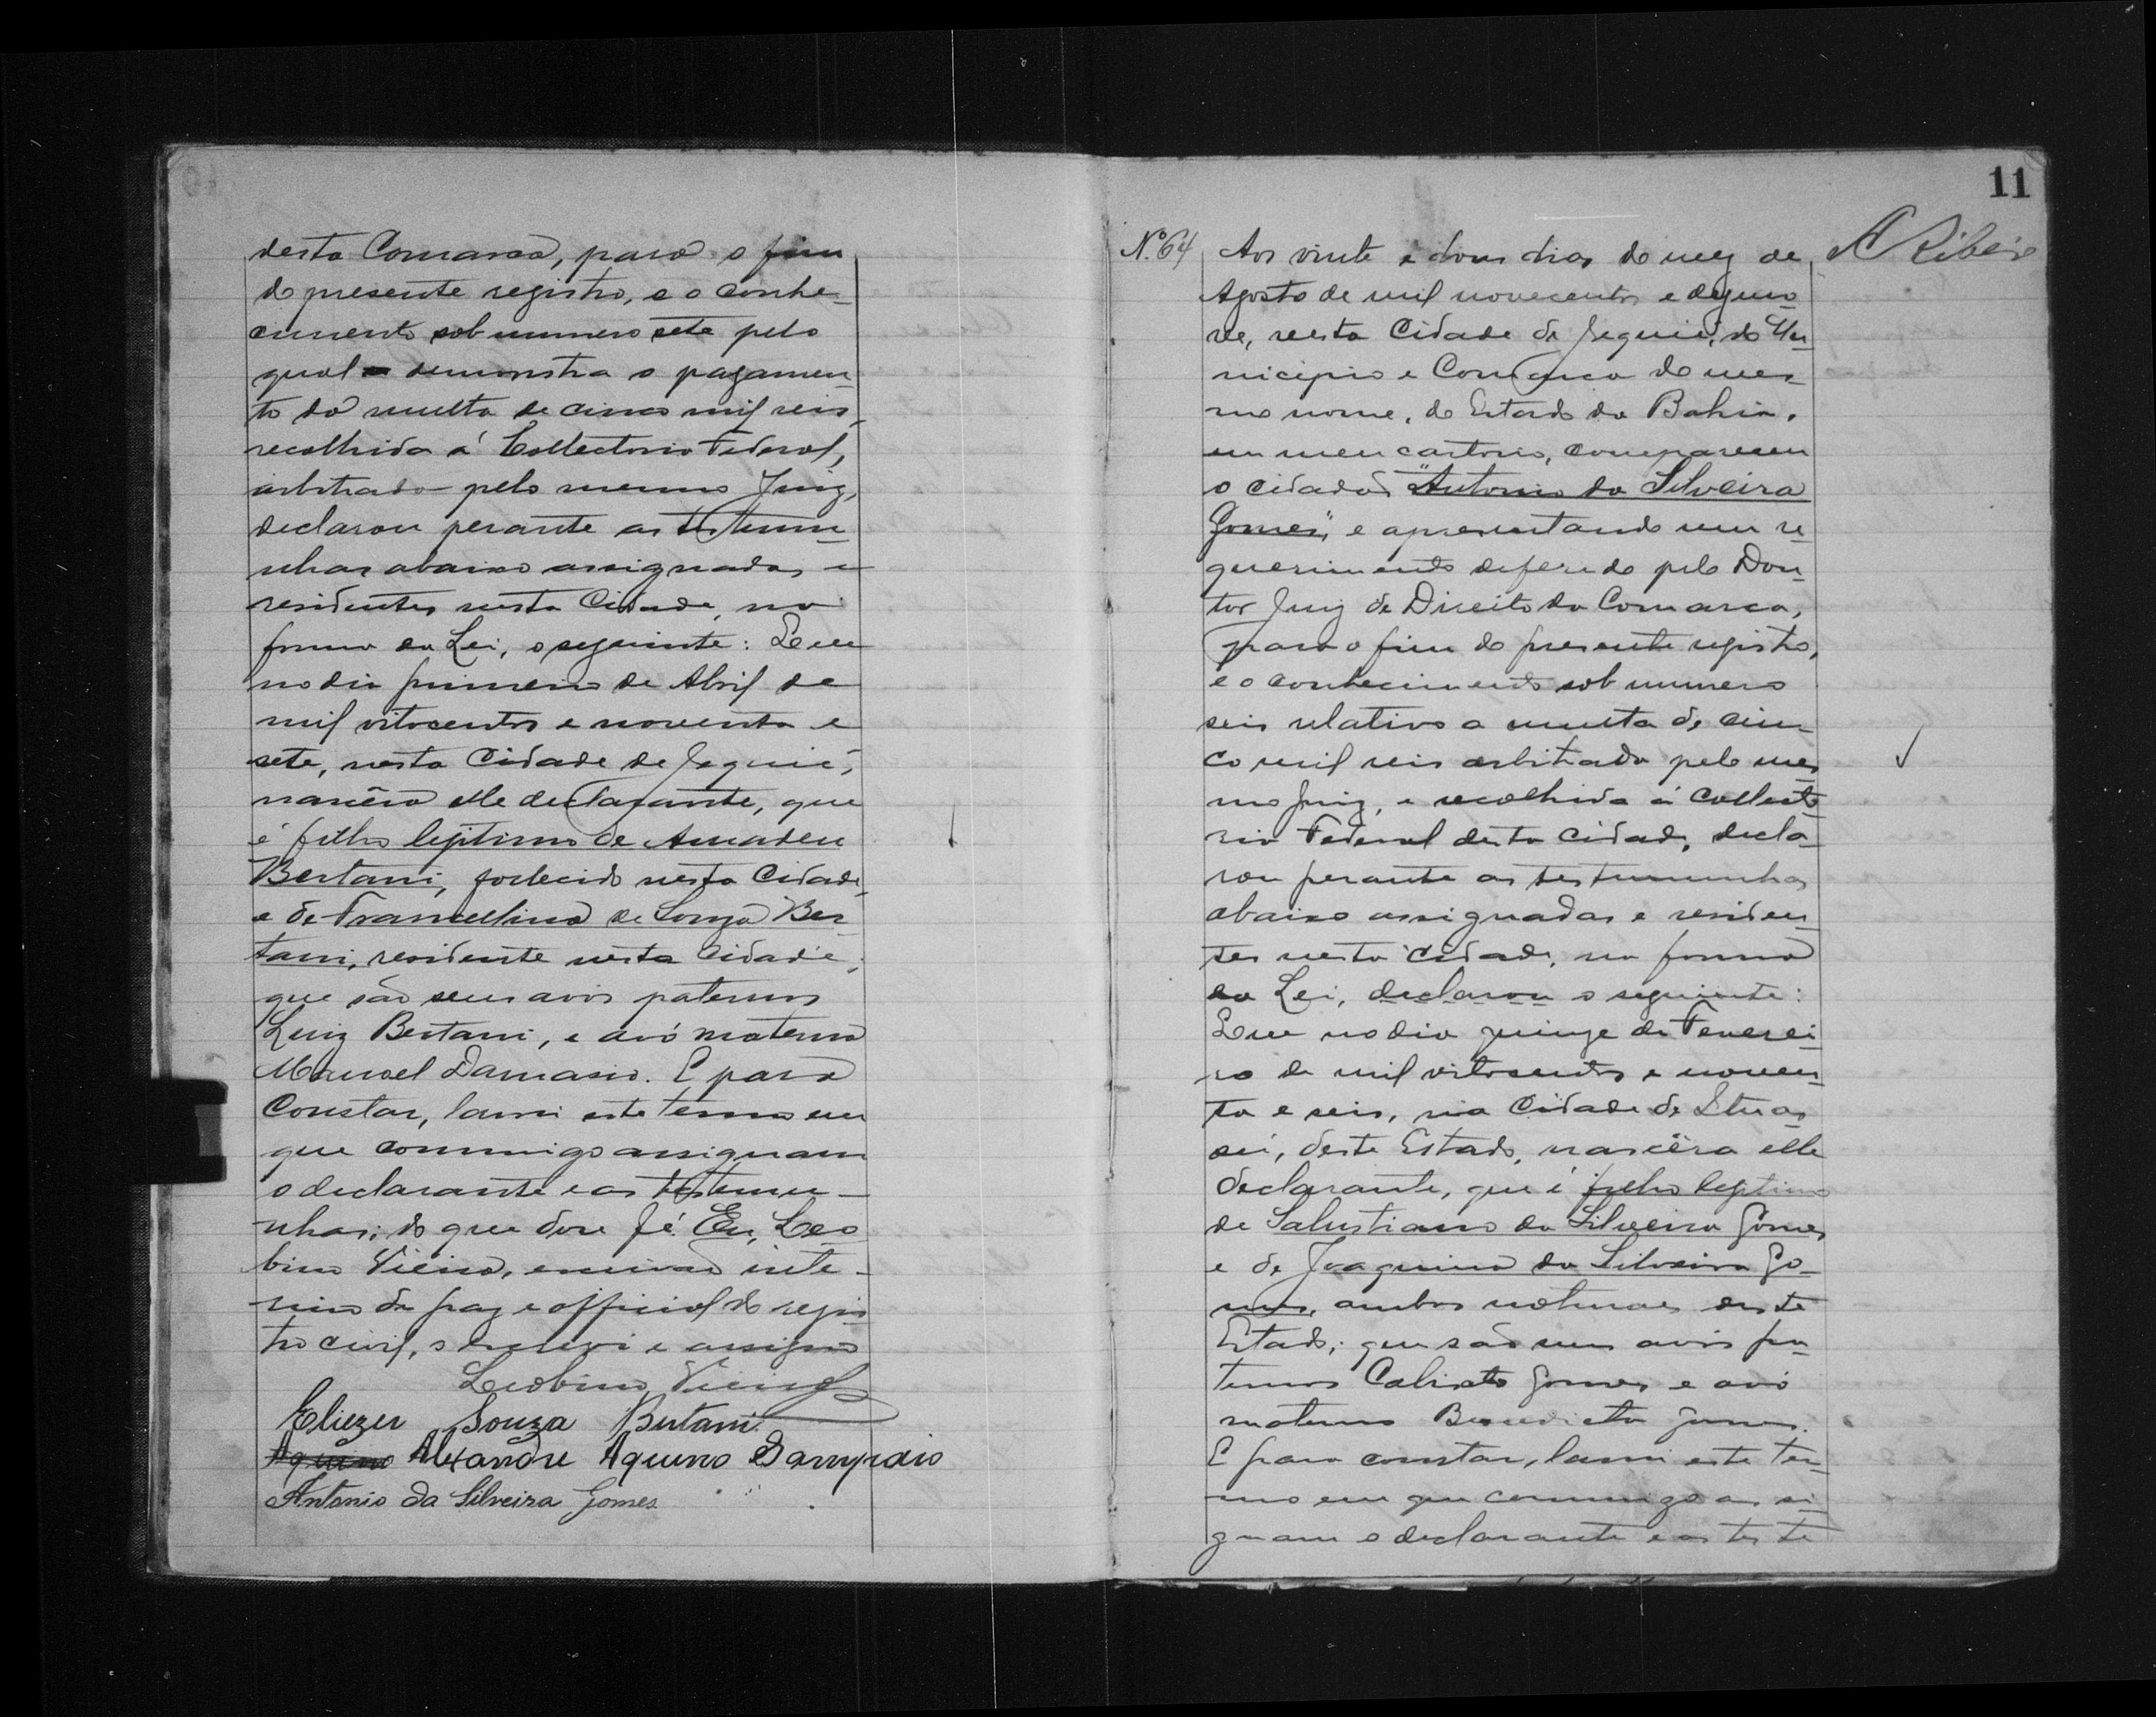 desta Comarca, para o fim
do presente registro, e o conhe-
cimento sob numero sete pelo
qual demonstra o pagamen-
to da multa de cinco mil reis,
recolhida á Collectoria Federal,
arbitrado pelo mesmo Juiz,
declarou perante as testemu-
nhas abaixo assignadas e
residentes nesta Cidade, na
forma da Lei, o seguinte: Que
no dia primeiro de Abril de
mil oitocentos e noventa e
sete, nesta Cidade de Jequié,
nascêra elle declarante, que
é filho legitimo de Amadeu
Bertani, fallecido nesta Cidade,
e de Francellina de Souza Ber-
tani, residente nesta Cidade;
que são seus avós paternos
Luiz Bertani, e avó materno
Manoel Damasio. E para
Constar, lavrei este termo em
que commigo assignam
o declarante e as testemu-
nhas; do que dou fé. Eu, Leo
bino Vieira, escrivão inte-
rino de paz e official do regis
tro civil, o escrevi e assigno
Leobino Vieira
Eliezer Souza Bertani
Aquino Alexandre Aquino Sampaio
Antonio da Silveira Gomes
11
Nº 64
A Ribeiro
Aos vinte e dous dias do mez de
Agosto de mil novecentos e dezeno
ve, nesta Cidade de Jequié, do Mu-
nicipio e Comarca do mes-
mo nome, do Estado da Bahia,
em meu cartorio, compareceu
o cidadão "Antonio da Silveira
Gomes", e apresentando um re-
querimento deferido pelo Dou-
tor Juiz de Direito da Comarca,
para o fim do presente registro,
e o conhecimento sob numero
seis relativo a multa de cin-
co mil reis arbitrada pelo mes
mo Juiz, e recolhida á Collecto
ria Federal desta Cidade, decla
rou perante as testemunhas
abaixo assignadas e residen-
tes nesta Cidade, na forma
da Lei, declarou o seguinte:
Que no dia quinze de Feverei-
ro de mil oitocentos e noven-
ta e seis, na Cidade de Ituas
sú, deste Estado, nascêra elle
declarante, que é filho legitimo
de Salustiano da Silveira Gomes
e de Joaquina da Silveira Go-
mes, ambos naturaes deste
Estado; que são seus avós pa-
ternos Calixto Gomes e avó
materno Benedicta Gomes.
E para constar, lavrei este ter-
mo em que commigo as si-
gnam o declarante e as teste